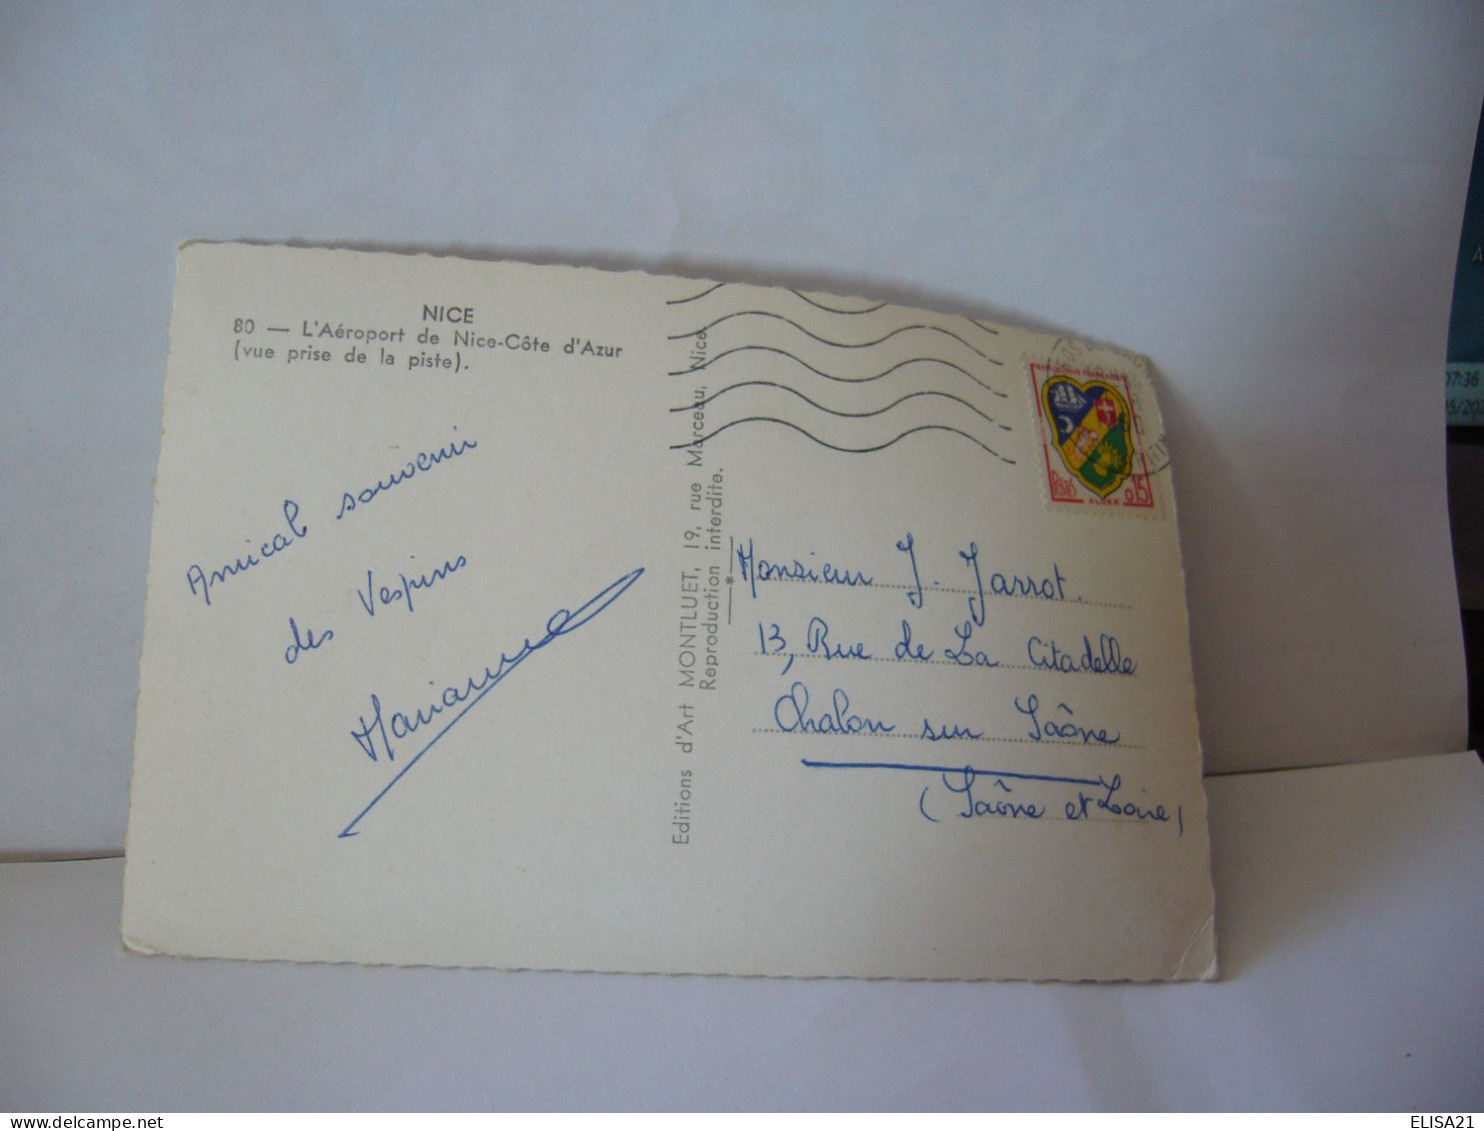 NICE
80 — L'Aéroport de Nice-Côte d'Azur
(vue prise de la piste).
Amical souvenir
des Vespins
Marianne
Editions d'Art MONTLUET, 19, rue Marceau, Nice.
Reproduction interdite.
*
REPUBLIQUE FRANÇAISE
POSTES
0,15
ALGER
Monsieur J. Jarrot.
13, Rue de La Citadelle
Chalon sur Saône
(Saône et Loire)
07:36
ELISA21